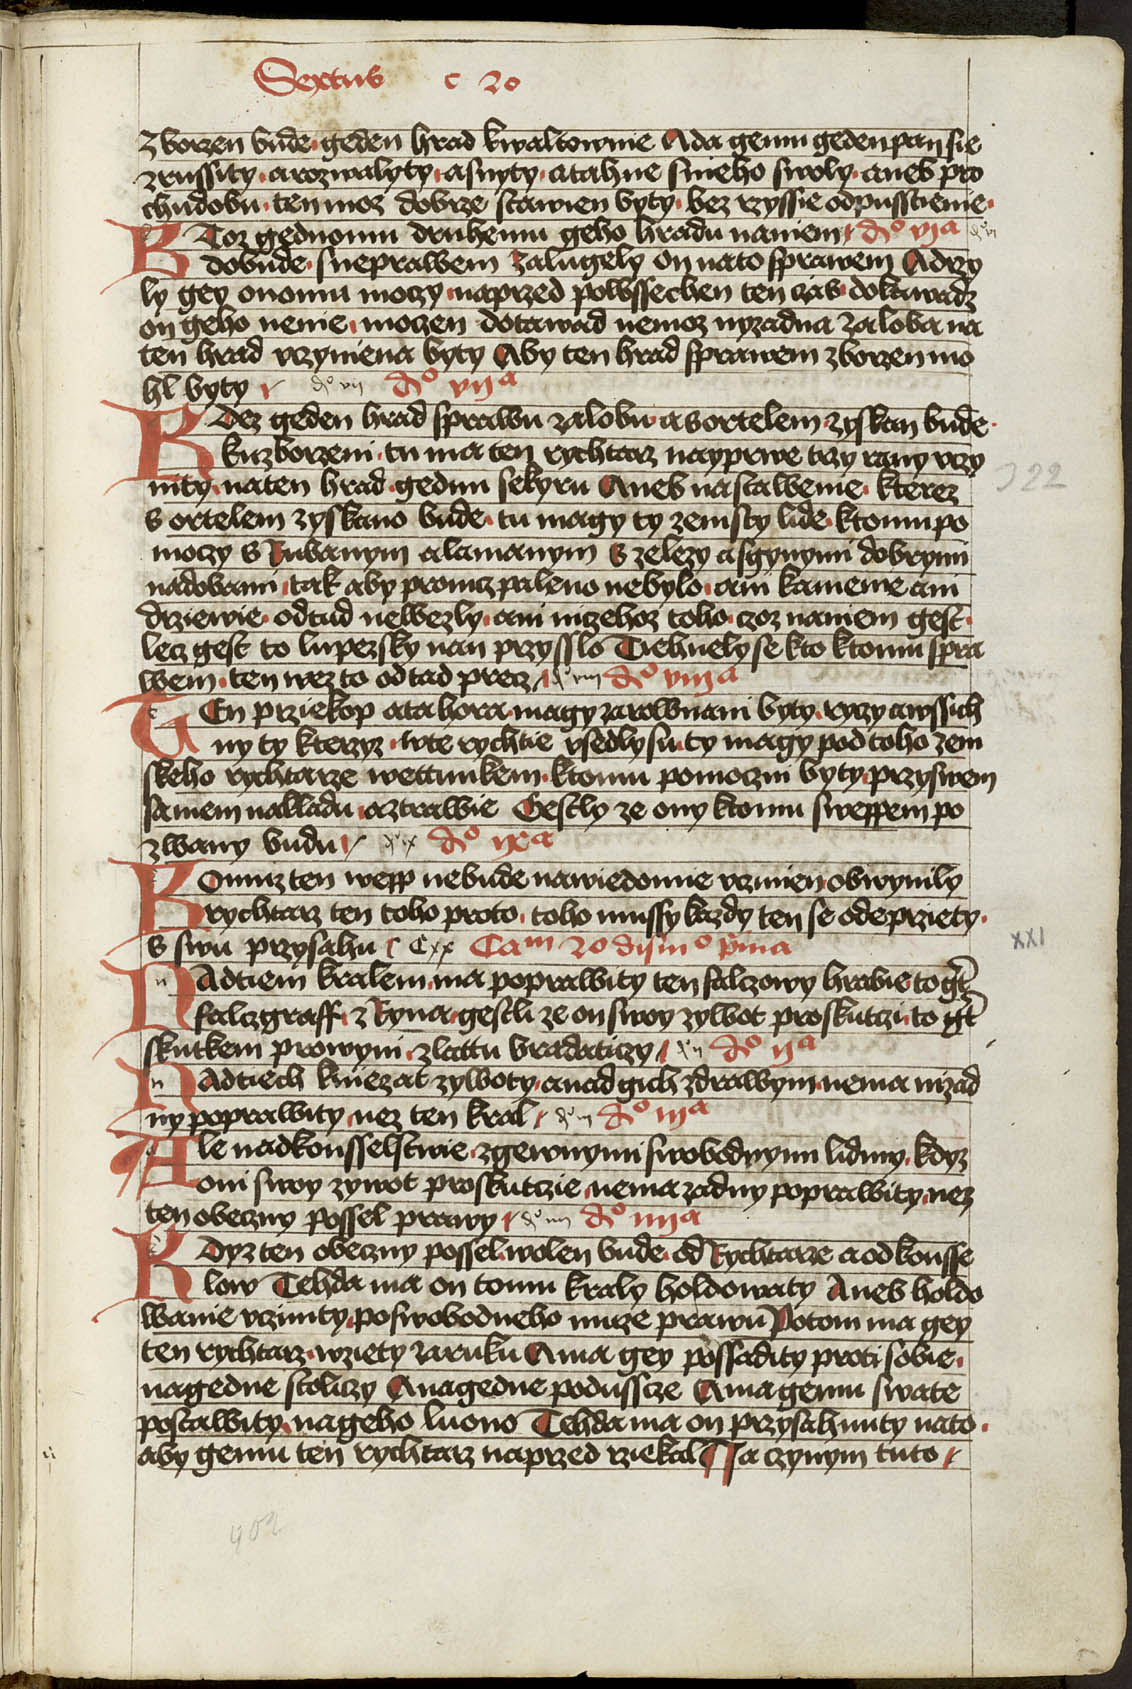 Sextus c 20
zborzen bude geden hrad kwaltownie Ada gemu geden pan sie
zrussity a rozwalyty a snyty a tahne sweho swoly aneb pro
chudobu ten moz dobrze stawien byty bez rzyssie odpusstienie
KToz gednomu druhemu geho hradu naniem do vja
dobude sneprawem zalugely on nato sprawem Adrzy
ly gey onomu moczy naprzed powssechen ten czas dokawadz
on geho nenie moczen dotawad nemoz nyzadna zaloba na
ten hrad vrzyniena byty Aby ten hrad sprawem zborzen mo
hl byty do vii do vija
KDez geden hrad sprawu zalobu a s ortelem zyskan bude
kuzborzeni tu ma ten rychtarz nayprwe trzy rany vczy
nity naten hrad gednu sekyru Aneb na stawenie kterez
s ortelem zyskano bude tu magy ty zemsty lide ktomu po
moczy s Rubanym a lamanym s zelezy a sgynymi dobrymi
nadobami tak aby promcz paleno nebylo ani kamenie ani
drziewie odtud newezly ani niczehoz toho czoz naniem gest
lecz gest to lupezsky nan przysslo Tiehnely se kto ktomu spra
wem ten wez to odtad precz do viii do viija
TEn prziekop a ta hora magy zarownani byty ryzy a wssich
ny ty kterzyz wte rychtie vsedly su ty magy pod toho zem
skeho rychtarze wettunkem ktomu pomoczni byty przyswem
samem nakladu a ztrawie Gestly ze ony ktomu sweppem po
zwany budu do ix do ixa
KOmuz ten wepp nebude nawiedomie vczinien obwynily
rychtarz ten toho proto toho mussy kazdy ten se odeprziety
s swu przysahu Cxx Cam 20 disimo prima
NAdtiem kralem ma poprawity ten falczowy hrabie to gest
falczgraff z Ryna gestli ze on swoy zywot proskutczi to gest
skutkem prowyni zlattu bradaticzy do ii do ija
NAdtiech kniezat zywoty a nad gich zdrawym nema nizad
ny poprawity nez ten kral do iii do iija
Ale nad konsselstwie zgewnymi swobodnymi lidmy kdyz
oni swoy zywot proskutczie nema zadny poprawity nez
ten obeczny possel prawy do iiii do iiija
KDyz ten obeczny possel wolen bude od Rychtarze a od konsse
low Tehda ma on tomu kraly holdowaty Aneb holdo
wanie vczinity po swobodneho muze prawu Potom ma gey
ten rychtarz wziety zaruku A ma gey possadity proti sobie
na gedne stoliczy A na gedne podussce A ma gemu swate
postawity na geho luono Tehda ma on przysahnuty nato
aby gemu ten rychtarz naprzed rziekal Ja czynym tuto
322
XXI
902